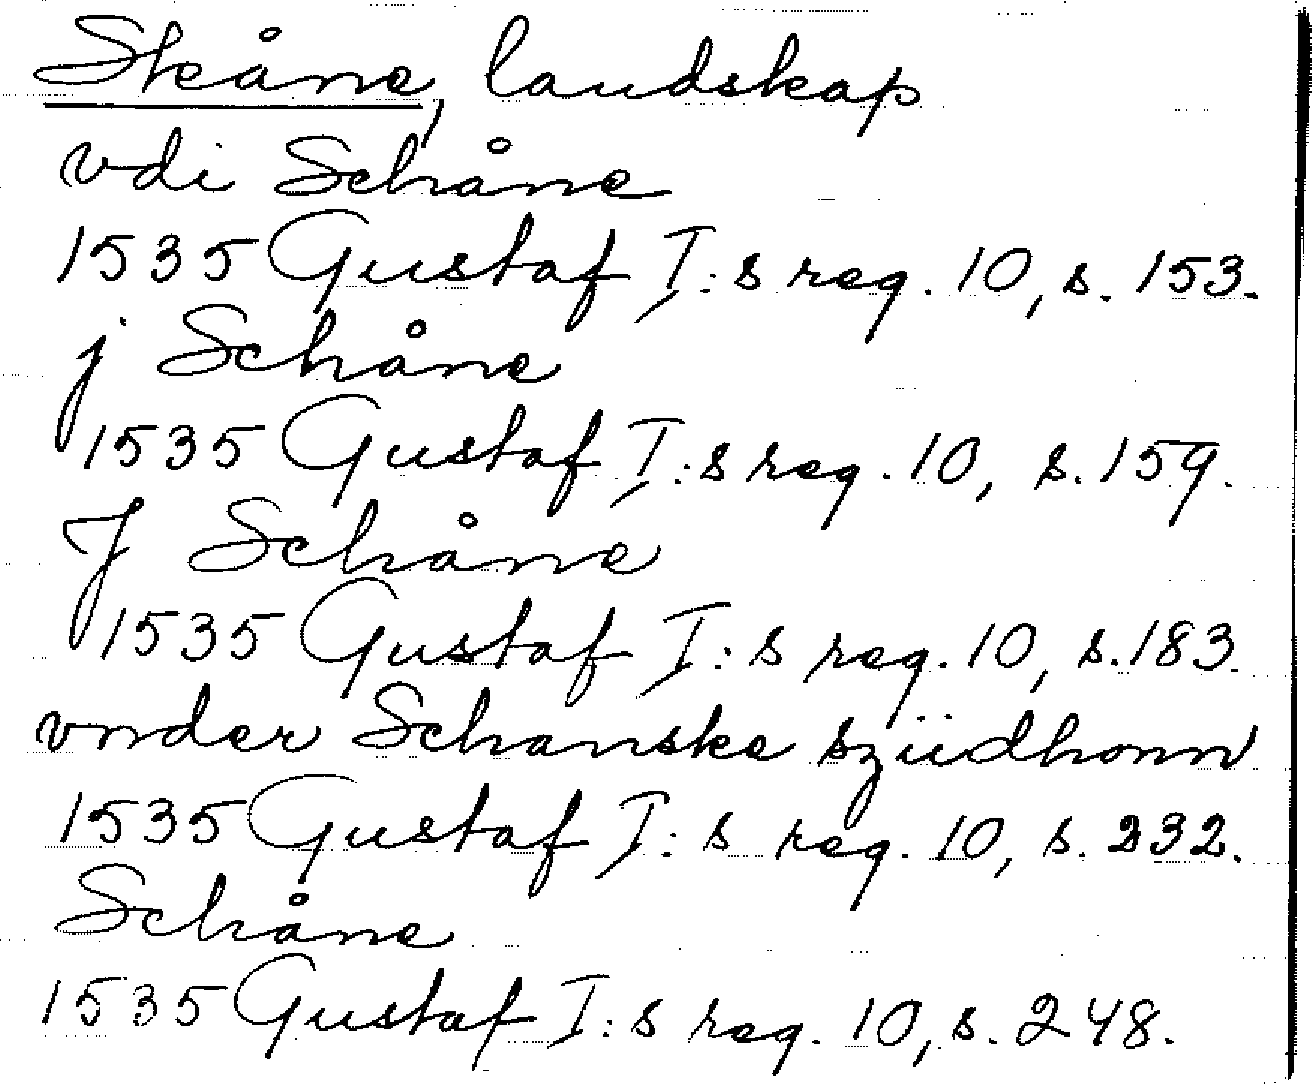 Skåne, landskap
vdi Schåne
1535 Gustaf I:s reg. 10, s. 153.
j Schåne
1535 Gustaf I:s reg. 10, s. 159.
J Schåne
1535 Gustaf I:s reg. 10, s. 183.
vnder Schanske szüdhonn
1535 Gustaf I:s reg. 10, s. 232.
Schåne
1535 Gustaf I:s reg. 10, s. 248.